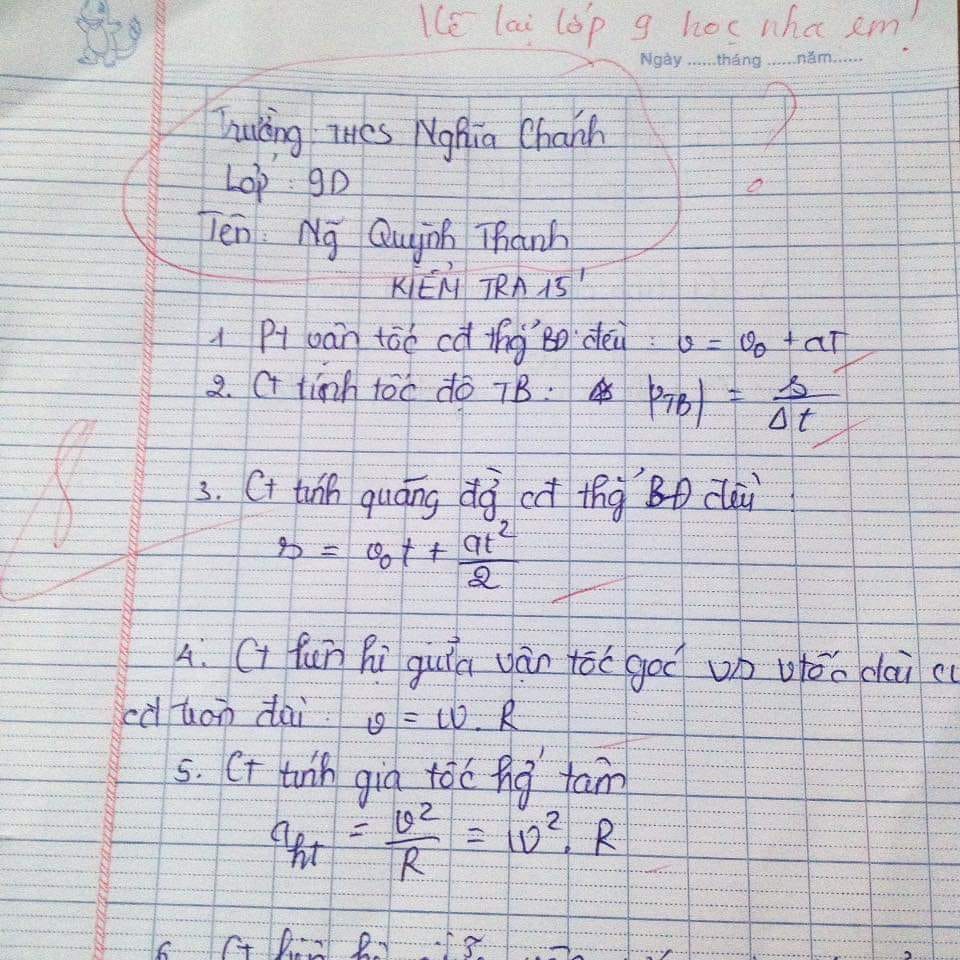 Về lại lớp 9 học nha em!
Ngày ......tháng ......năm......
Trường: THCS Nghĩa Chánh
?
Lớp: 9D
Tên: Ng~ Quỳnh Thanh
KIỂM TRA 15'
1 Pt vận tốc cđ thg BĐ đều: v = v₀ + aT
2. Ct tính tốc độ TB: |v_TB| = s / Δt
8
3. Ct tính quãng đg cđ thg BĐ đều
s = v₀t + at² / 2
4. Ct liên hệ giữa vận tốc góc và vtốc dài
cđ tròn đều. v = ω. R
5. Ct tính gia tốc hg tâm
a_ht = v² / R = ω². R
6. Ct liên hệ